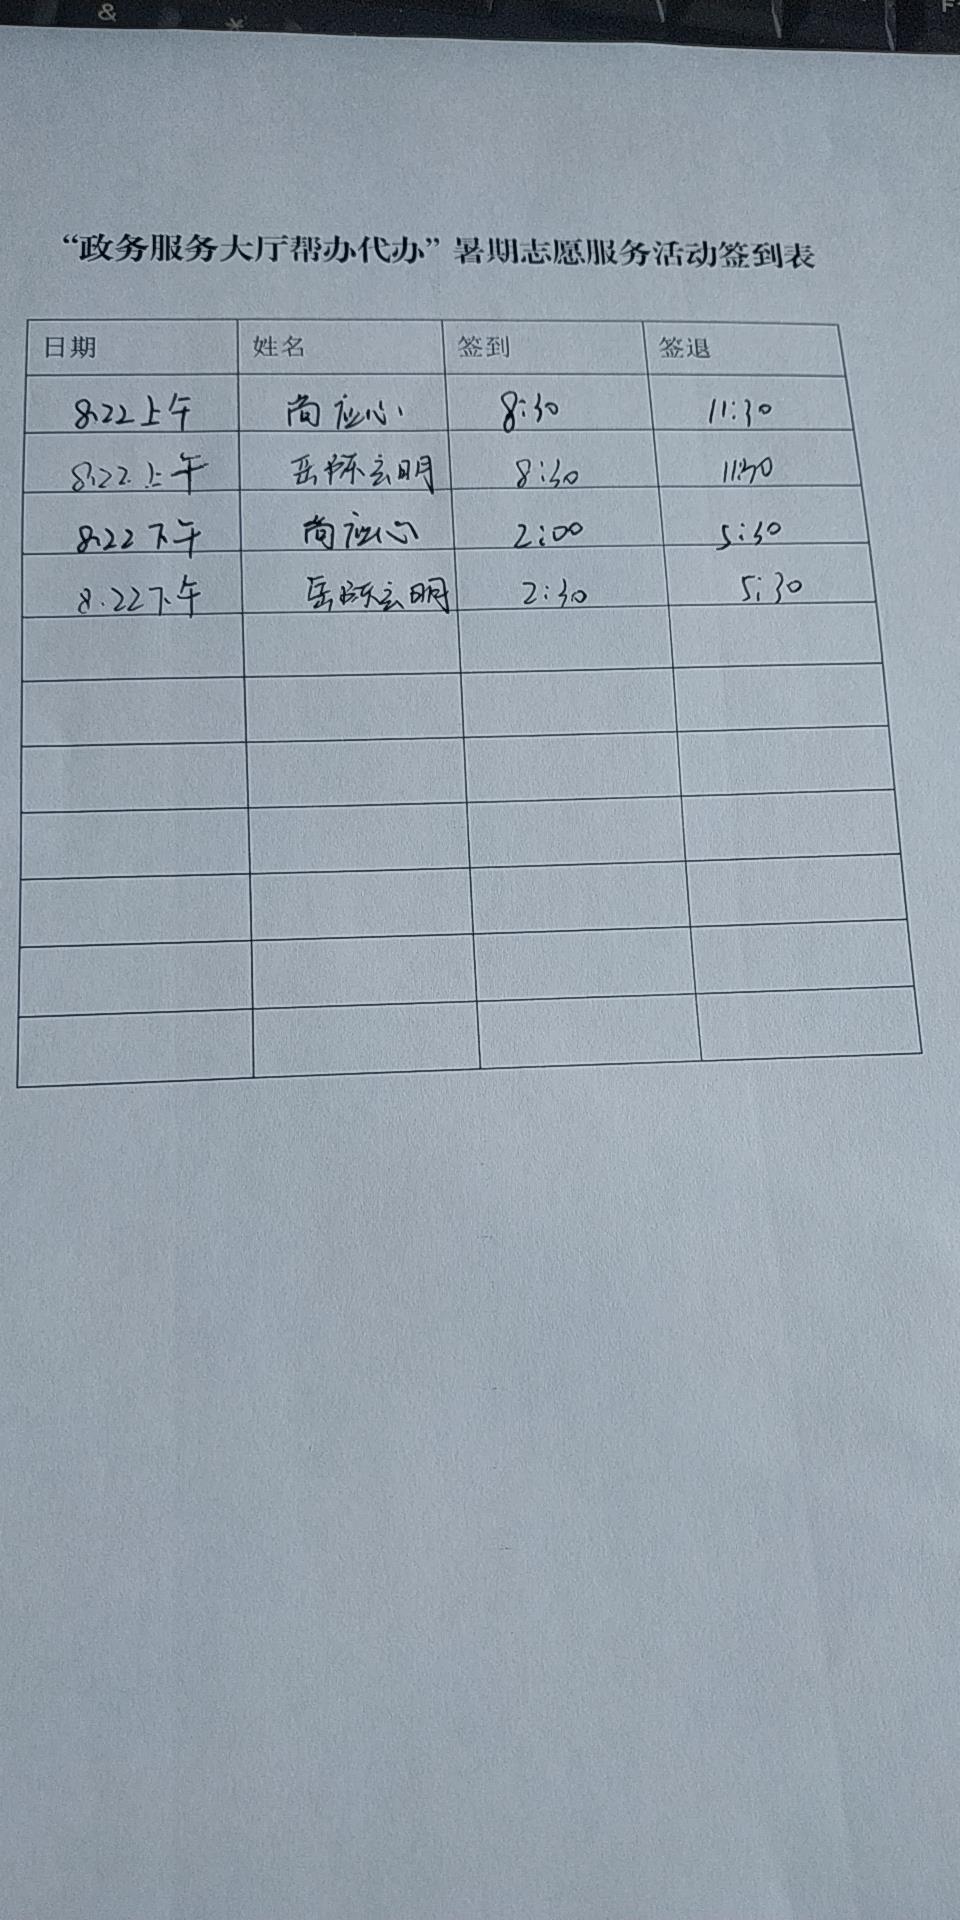 &
*
“政务服务大厅帮办代办”暑期志愿服务活动签到表
日期 姓名 签到 签退
8.22上午 尚应心 8:30 11:30
8.22.上午 岳陈玄明 8:30 11:30
8.22下午 尚应心 2:00 5:30
8.22下午 岳陈玄明 2:30 5:30